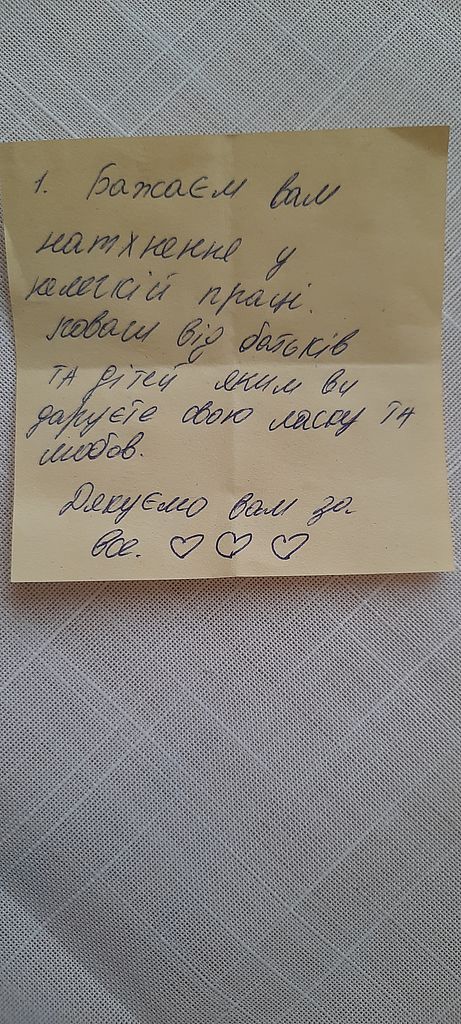 1. Бажаєм вам
натхнення у
нелегкій праці.
поваги від батьків
та дітей яким ви
даруєте свою ласку та
любов.
Дякуємо вам за
все. ♡ ♡ ♡